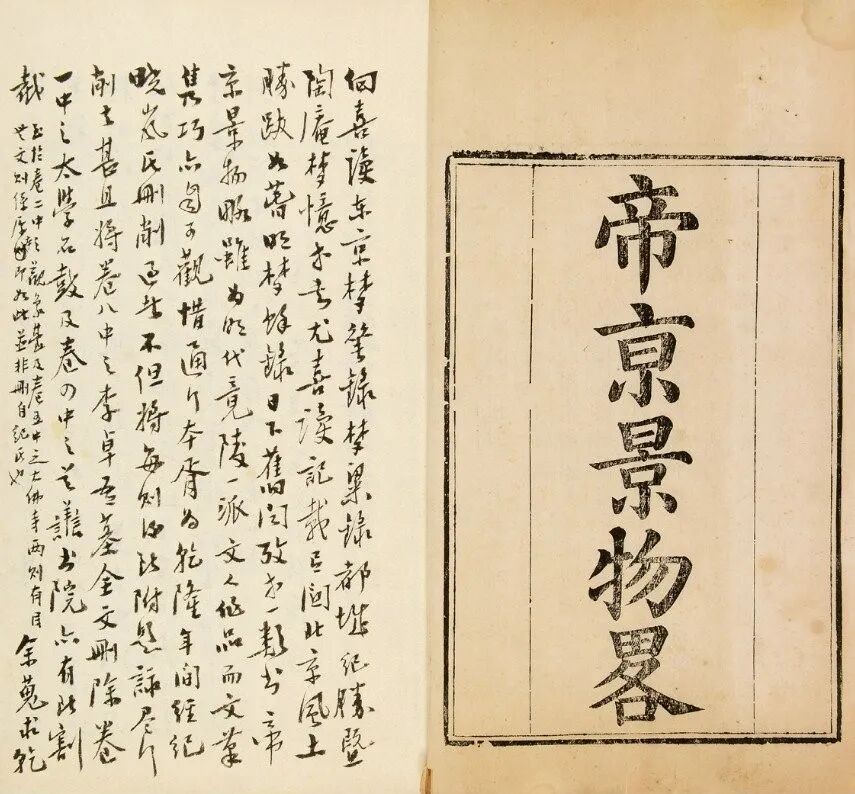 帝京景物畧
向喜讀東京梦華錄梦粱錄都城紀勝暨
陶庵梦憶等書尤喜讀記載有關北京風土
勝跡如春明梦餘錄日下舊聞攷等一類書帝
京景物略雖為明代竟陵一派文人作品而文筆
雋巧亦自可觀惜通行本胥為乾隆年間經紀
曉嵐氏刪削過者不但將每則後所附題詠盡行
削去甚且將卷八中之李卓吾墓全文刪除卷
一中之太學石鼓及卷四中之首善書院亦有所割
裁
至於卷二中之觀象臺及卷五中之大佛寺兩則有目
無文則係原即如此並非刪自紀氏也
余蒐求乾